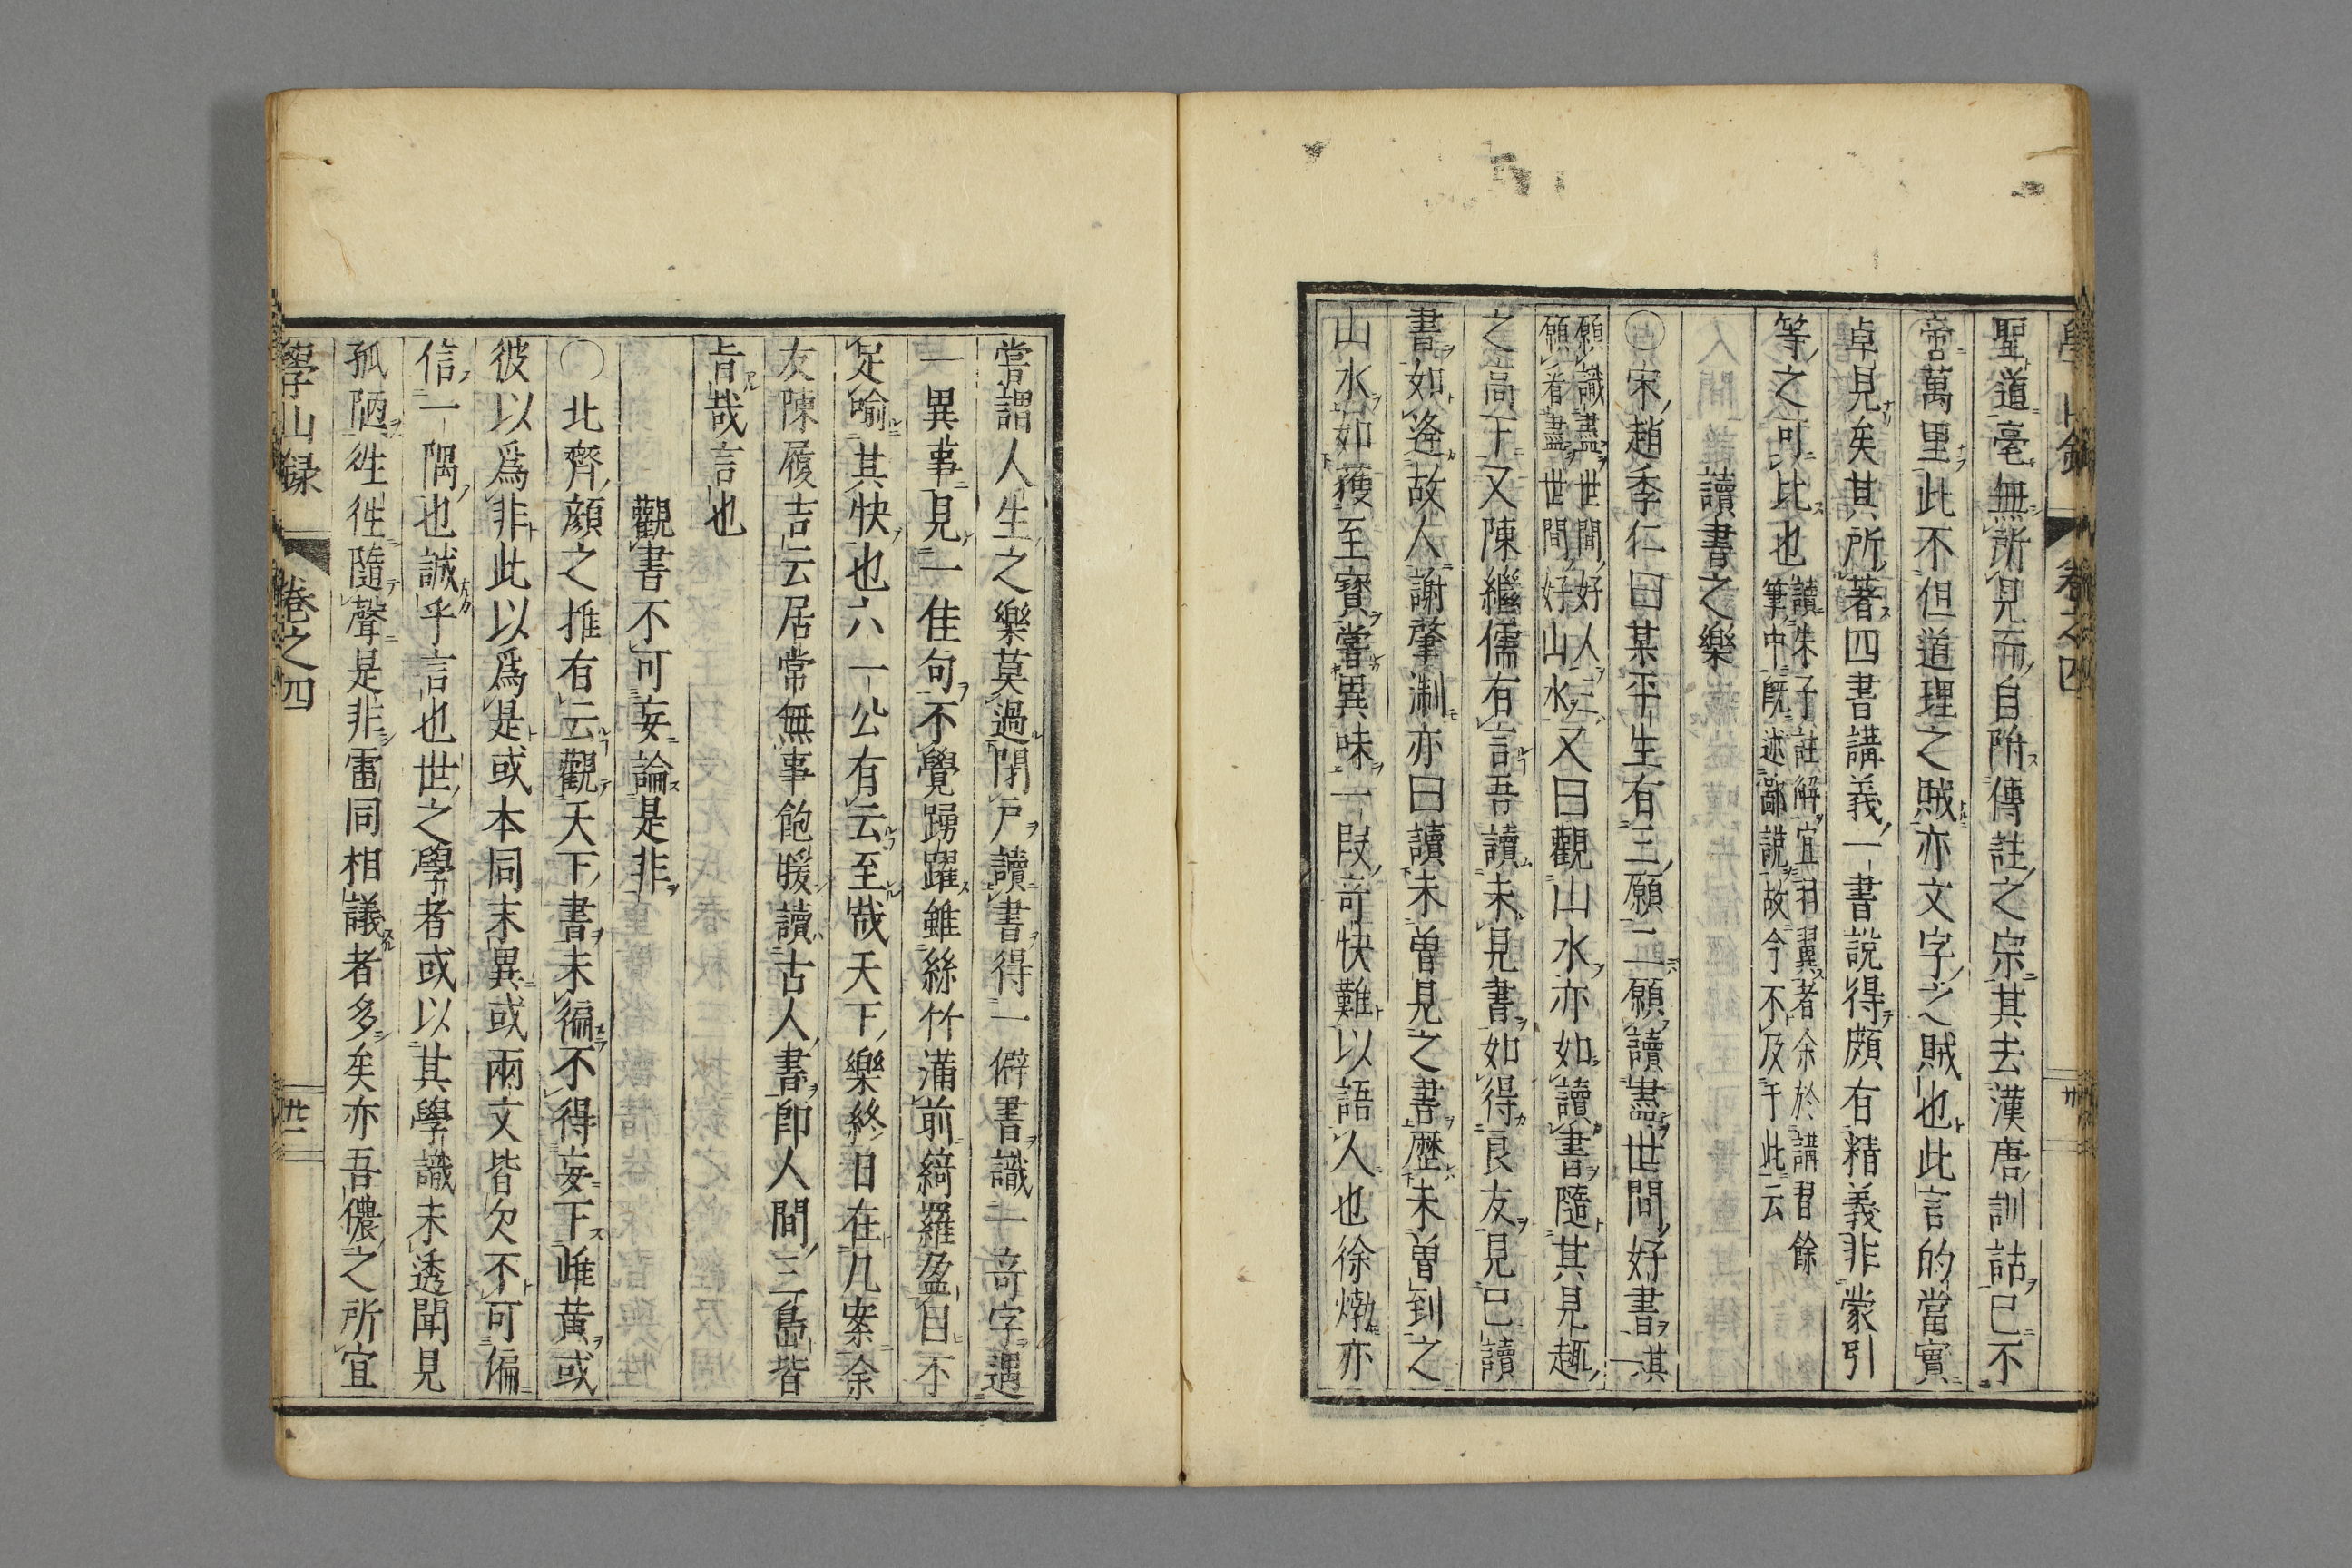 學山錄 卷之四 廿
聖道毫無所見而自附傳註之宗其去漢唐訓詁已不
啻萬里此不但道理之賊亦文字之賊也此言的當實
卓見矣其所著四書講義一書說得頗有精義非蒙引
等之可比也讀朱子註解宜羽翼者余於講習餘
筆中既述鄙說故今不及于此云
讀書之樂
○宋趙季仁曰某平生有三願一願識盡世間好人二
願讀盡世間好書其一
願看盡世間好山水又曰觀山水亦如讀書隨其見趣
之高下又陳繼儒有言吾讀未見書如得良友見已讀
書如逢故人謝肇淛亦曰讀未曽見之書歷未曽到之
山水如獲至寶嘗異味一段奇快難以語人也徐𤊹亦
嘗謂人生之樂莫過閉戸讀書得一僻書識一奇字遇
一異事見一佳句不覺踴躍雖絲竹滿前綺羅盈目不
足喻其快也六一公有云至哉天下樂終日在几案余
友陳履吉云居常無事飽暖讀古人書即人間三島皆
旨哉言也
觀書不可妄論是非
○北齊顔之推有云觀天下書未徧不得妄下雌黄或
彼以爲非此以爲是或本同末異或兩文皆欠不可偏
信一隅也誠乎言也世之學者或以其學識未透聞見
孤陋徃徃隨聲是非雷同相議者多矣亦吾儂之所宜
學山録 卷之四 廿一